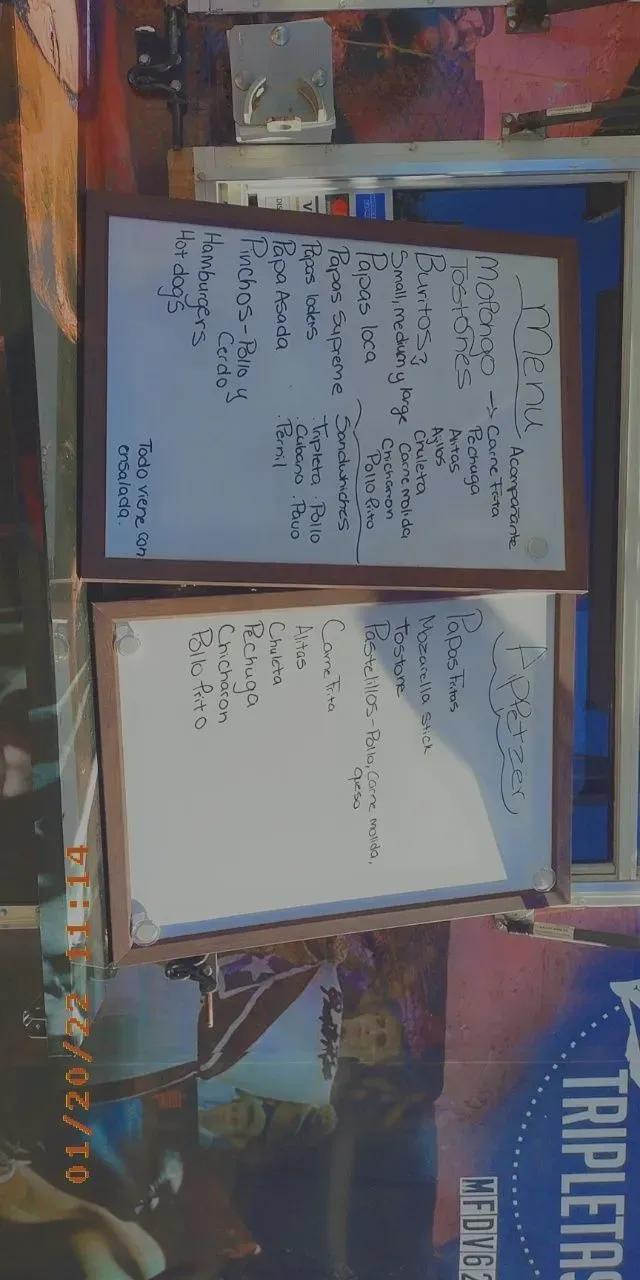 Menu
Acompañante
Mofongo → Carne Frita
Tostones
Pechuga
Alitas
Burritos
Ajillos
Small, medium y large
Chuleta
Carne molida
Chicharon
Pollo Frito
Papas loca
Papas Supreme
Papas loders
Papa Asada
Pinchos - Pollo y
Cerdo
Hamburgers
Hot dogs
Sandwhiches
. Tripleta . Pollo
. Cubano . Pavo
. Pernil
Todo viene con
ensalada.
Appetzer
Papas Fritas
Mozarella stick
Tostone
Pastelillos - Pollo, Carne molida,
queso
Carne Frita
Alitas
Chuleta
Pechuga
Chicharon
Pollo Frito
TRIPLETAS
MFDV62
01/20/22 11:14